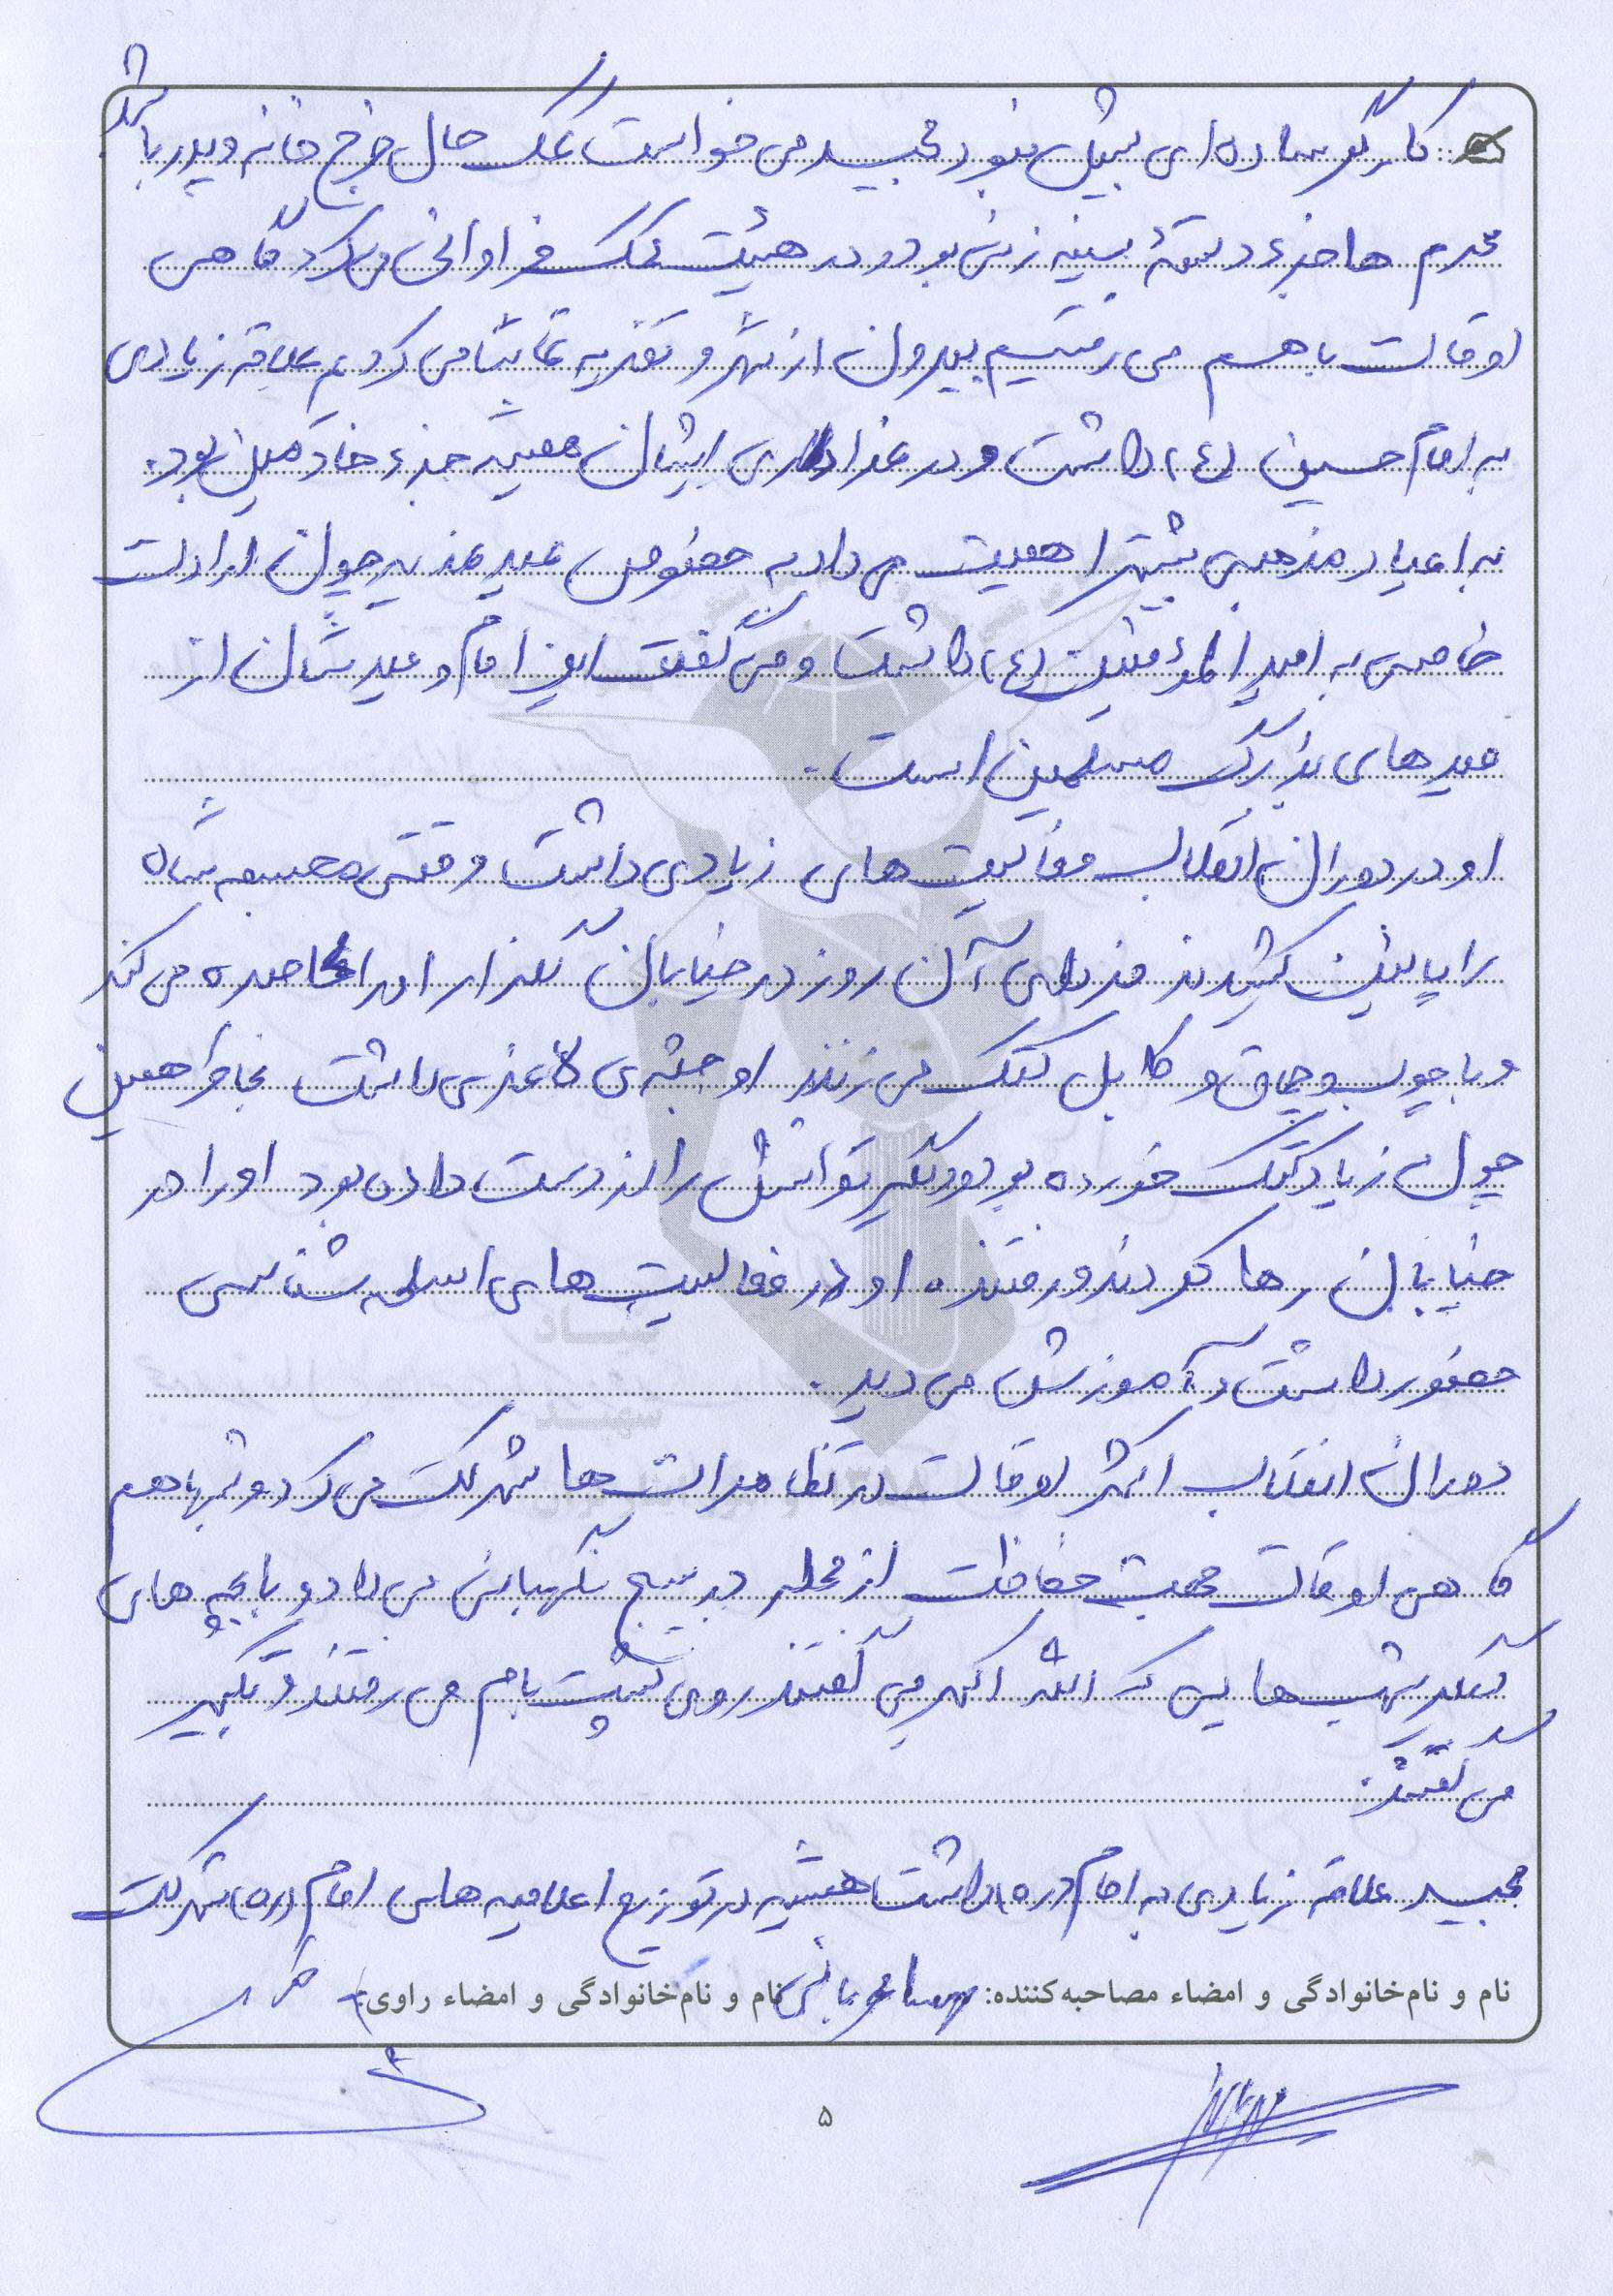 کارگر ساده‌ای بیش نبود مجید می‌خواست کمک حال خرج خانه و پدر باشد
محرم‌ها جزء دستهٔ سینه زنی بود و در هیئت کمک فراوانی می‌کرد گاهی
اوقات باهم می‌رفتیم بیرون از شهر و تعزیه تماشا می‌کردیم علاقه زیادی
به امام حسین (ع) داشت و در عزاداری ایشان همیشه جزء خادمین بود.
به اعیاد مذهبی بیشتر اهمیت می‌داد به خصوص عید غدیر چون ارادت
خاصی به امیرالمؤمنین (ع) داشت و می‌گفت این امام و عیدشان از
عیدهای بزرگ مسلمین است.
او در دوران انقلاب فعالیت‌های زیادی داشت وقتی مجسمه شاه
را پایین کشیدند فردای آن روز در خیابان گلزار او را محاصره می‌کند
و با چوب و چماق و کابل کتک می‌زنند او جثه‌ی لاغری داشت بخاطر همین
چون زیاد کتک خورده بود و دیگر توانش را از دست داده بود او را در
خیابان رها کردند و رفتند. او در فعالیت‌های اسلحه شناسی
حضور داشت و آموزش می‌دید.
دوران انقلاب اکثر اوقات در تظاهرات‌ها شرکت می‌کرد و شبها هم
گاهی اوقات جهت حفاظت از محله در بسیج نگهبانی می‌داد و با بچه‌های
دیگر شب‌هایی که الله اکبر می‌گفتند روی پشت بام می‌رفتند و تکبیر
می‌گفتند.
مجید علاقه زیادی به امام (ره) داشت همیشه در توزیع اعلامیه‌های امام (ره) شرکت
نام و نام‌خانوادگی و امضاء مصاحبه‌کننده: نام و نام‌خانوادگی و امضاء راوی:
۵